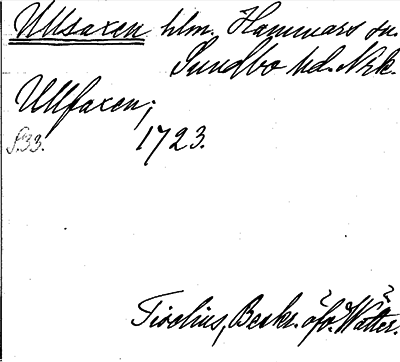 Ullsaxen hlm. Hammars sn.
Sundbo hd. Nrk.
Ullfaxen;
S. 33. 1723.
Tiselius, Beskr. öfv. Wätter.